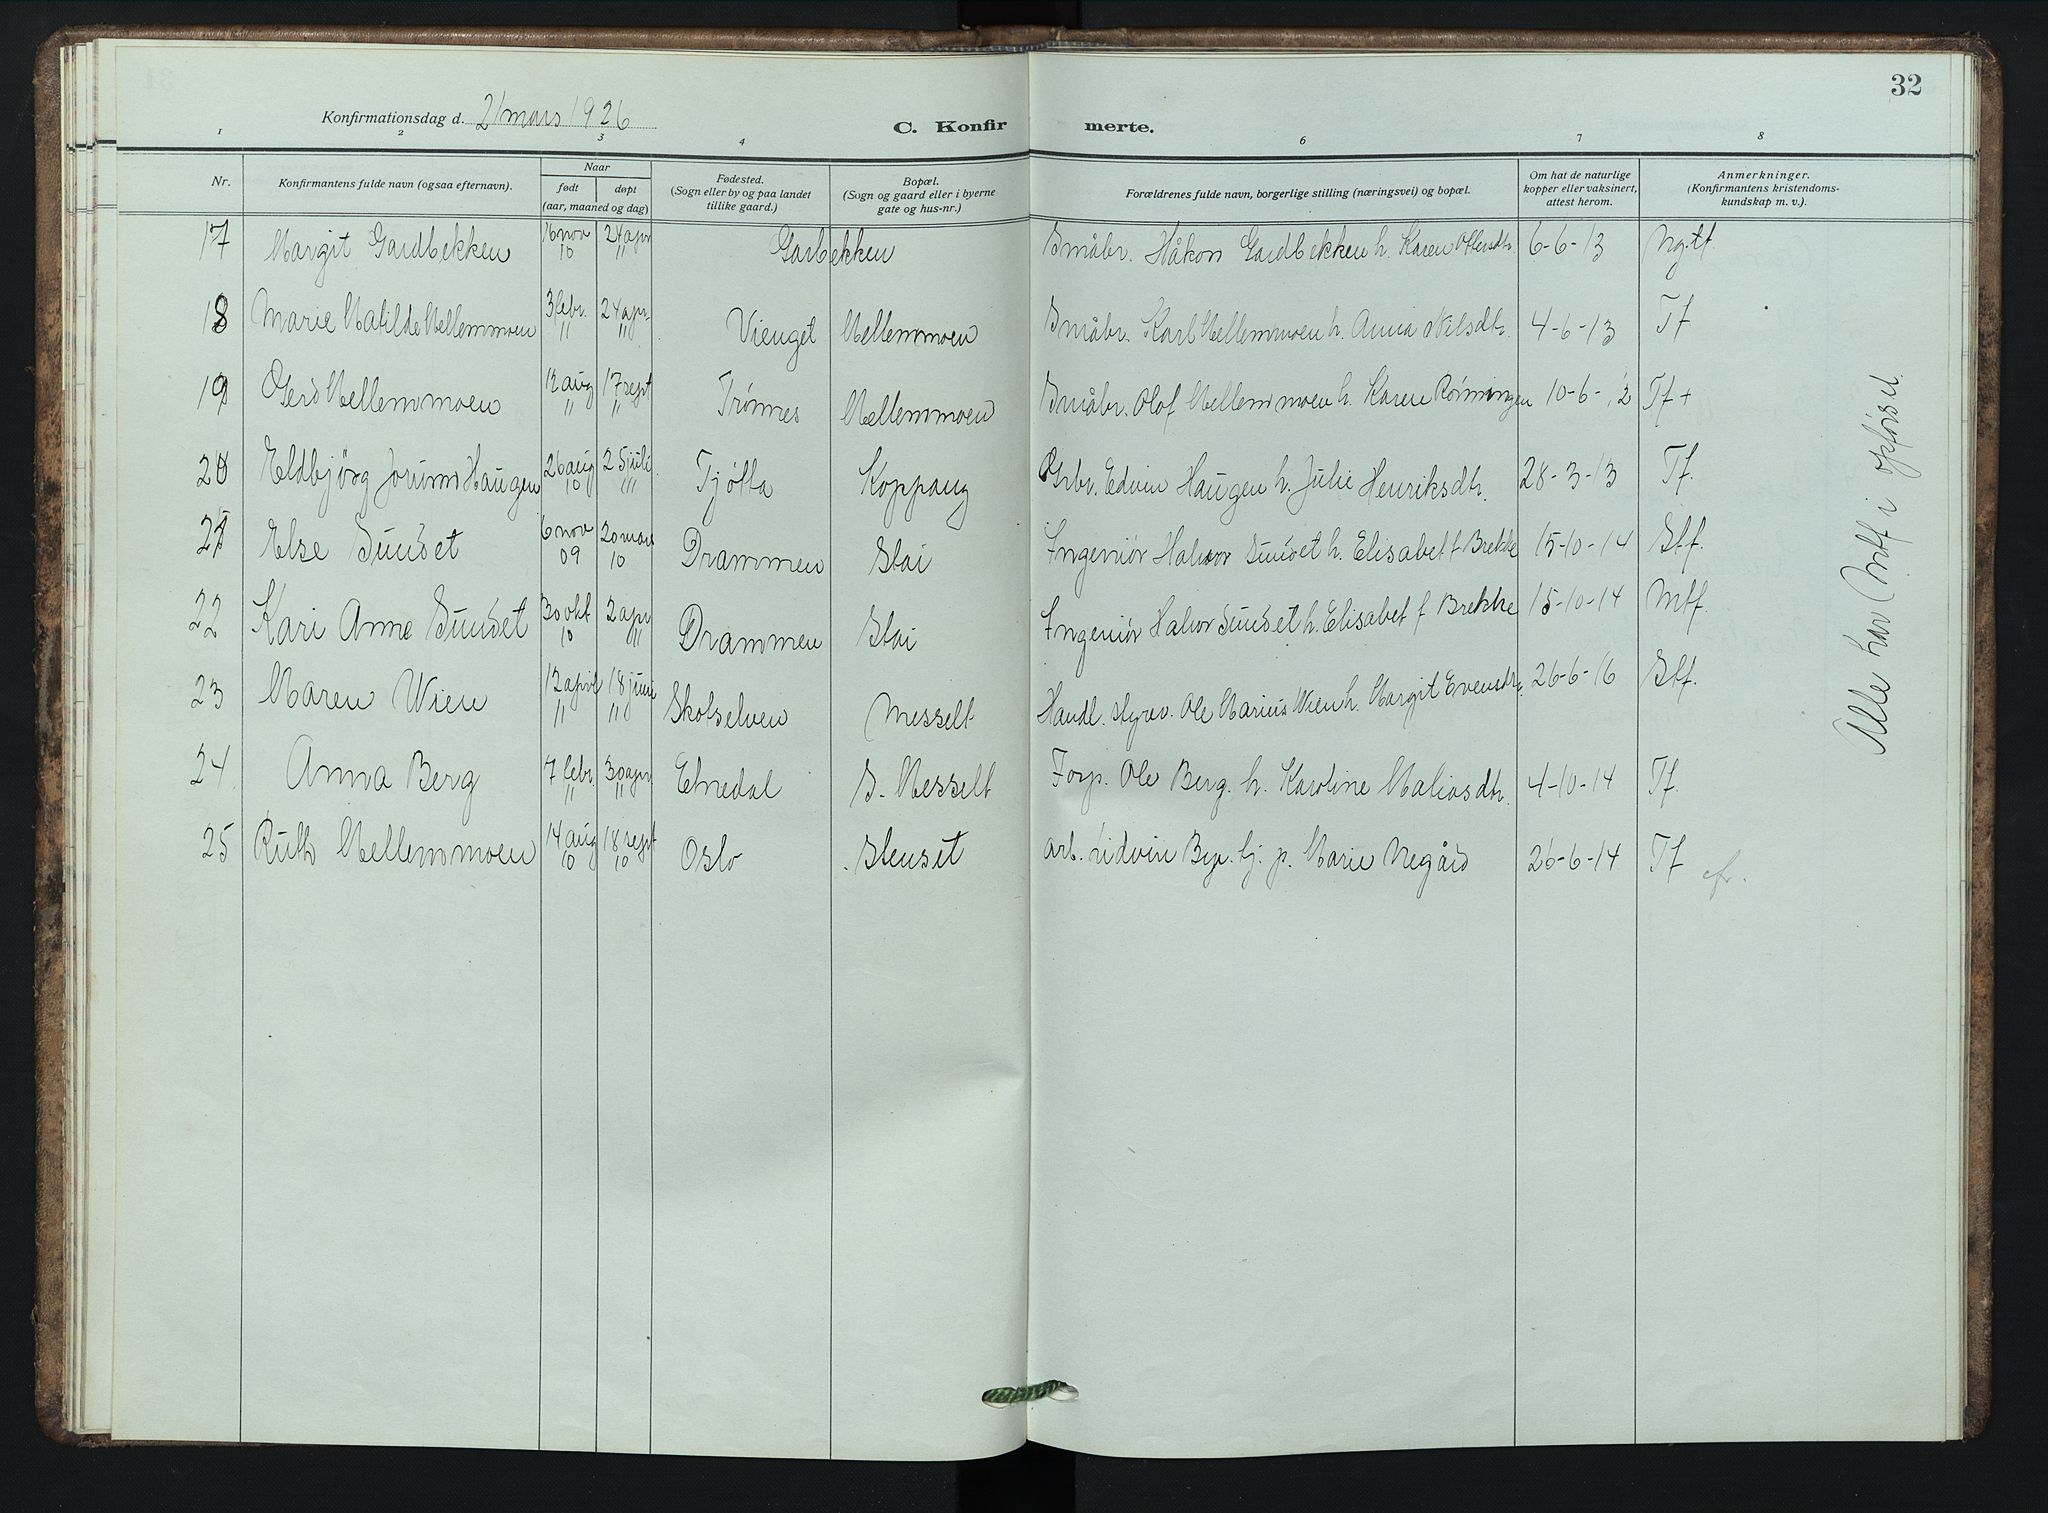 32
Konfirmationsdag d. 21 mars 1926
C. Konfirmerte.
1 2 3 4 6 7 8
Nr. Konfirmantens fulde navn (ogsaa efternavn). Naar født døpt (aar, maaned og dag) Fødested. (Sogn eller by og paa landet tillike gaard.) Bopæl. (Sogn og gaard eller i byerne gate og hus-nr.) Forældrenes fulde navn, borgerlige stilling (næringsvei) og bopæl. Om hat de naturlige kopper eller vaksinert, attest herom. Anmerkninger. (Konfirmantens kristendomskundskap m. v.).
17 Margit Gardbekken 16 nov 10 24 apr " Garbekken Småbr. Håkon Gardbekken h. Karen Ottersdtr. 6-6-13 Mgtf
18 Marie Matilde Mellemmoen 3 febr. " 24 apr. " Vienget Mellemmoen Småbr. Karl Mellemmoen h. Anna Nilsdtr. 4-6-13 Tf
19 Gerd Mellemmoen 12 aug " 17 sept " Trønnes Mellemmoen Småbr. Olof Mellemmoen h. Karen Rønningen 10-6-12 Tf +
20 Eldbjørg Jorunn Haugen 26 aug 10 25 juli " Tjøtta Koppang Edvin Haugen h. Julie Henriksdtr. 28-3-13 Tf.
21 Else Sundet 6 nov 09 20 mars 10 Drammen Stai Ingeniør Halvor Sundet h. Elisabet f Brekke 15-10-14 Stf.
22 Kari Anne Sundet 30 okt 10 2 apr 11 Drammen Stai Ingeniør Halvor Sundet h. Elisabet f Brekke 15-10-14 Mtf.
23 Maren Wien 12 april 11 18 juni 11 Skotselven Messelt Handl. styrer. Ole Marius Wien h. Margit Evensdtr. 26-6-16 Stf.
24 Anna Berg 7 febr. " 30 apr " Etnedal S. Messelt Forp. Ole Berg. h. Karoline Matiasdtr. 4-10-14 Tf
25 Ruth Mellemmoen 14 aug 10 18 sept 10 Oslo Stenset arb. Lidvin Bye. tj. p. Marie Negård 26-6-14 Tf
Alle har Mtf i opførsel.